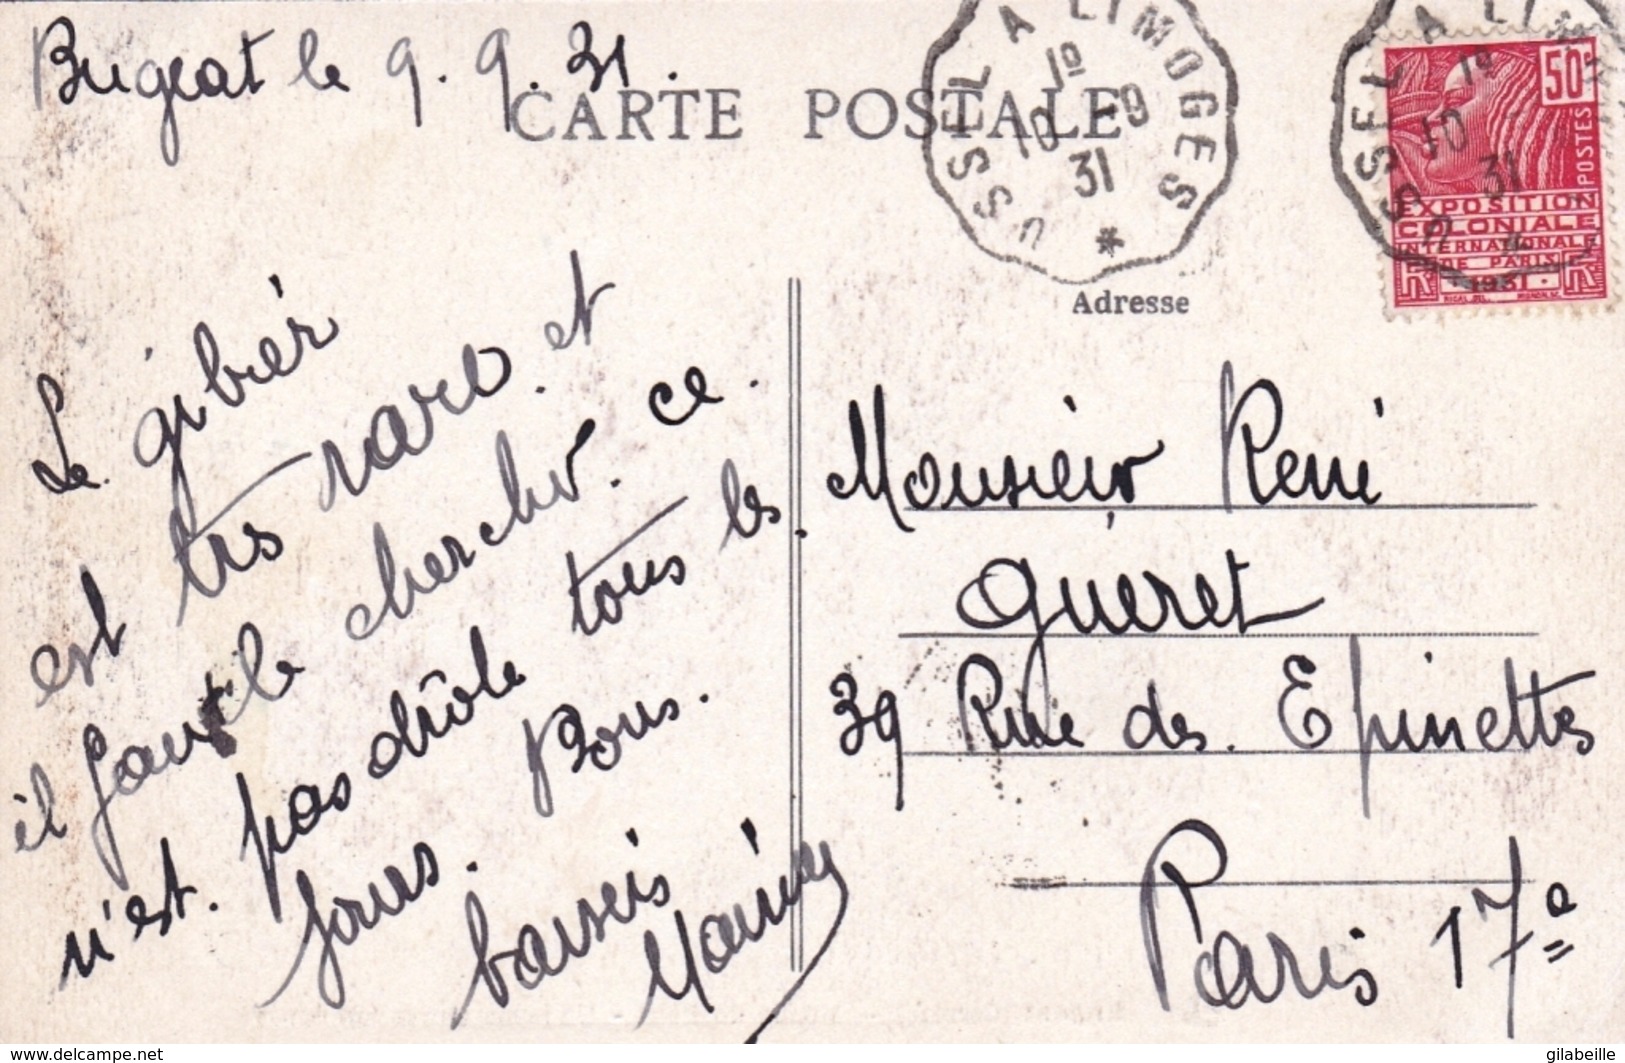 Bugeat le 9.9.31.
CARTE POSTALE
USSEL A LIMOGES
1º
10 -9
31
*
USSEL A LIM
1º
10
31
50c
POSTES
EXPOSITION
COLONIALE
INTERNATIONALE
DE PARIS
1931
Adresse
Le gibier
est très rare et
il faut le chercher. ce
n'est pas drôle tous les
jours. Bons
baisers
Monsieur René
Quéret
39 Rue des Epinettes
Paris 17e
www.delcampe.net
gilabeille